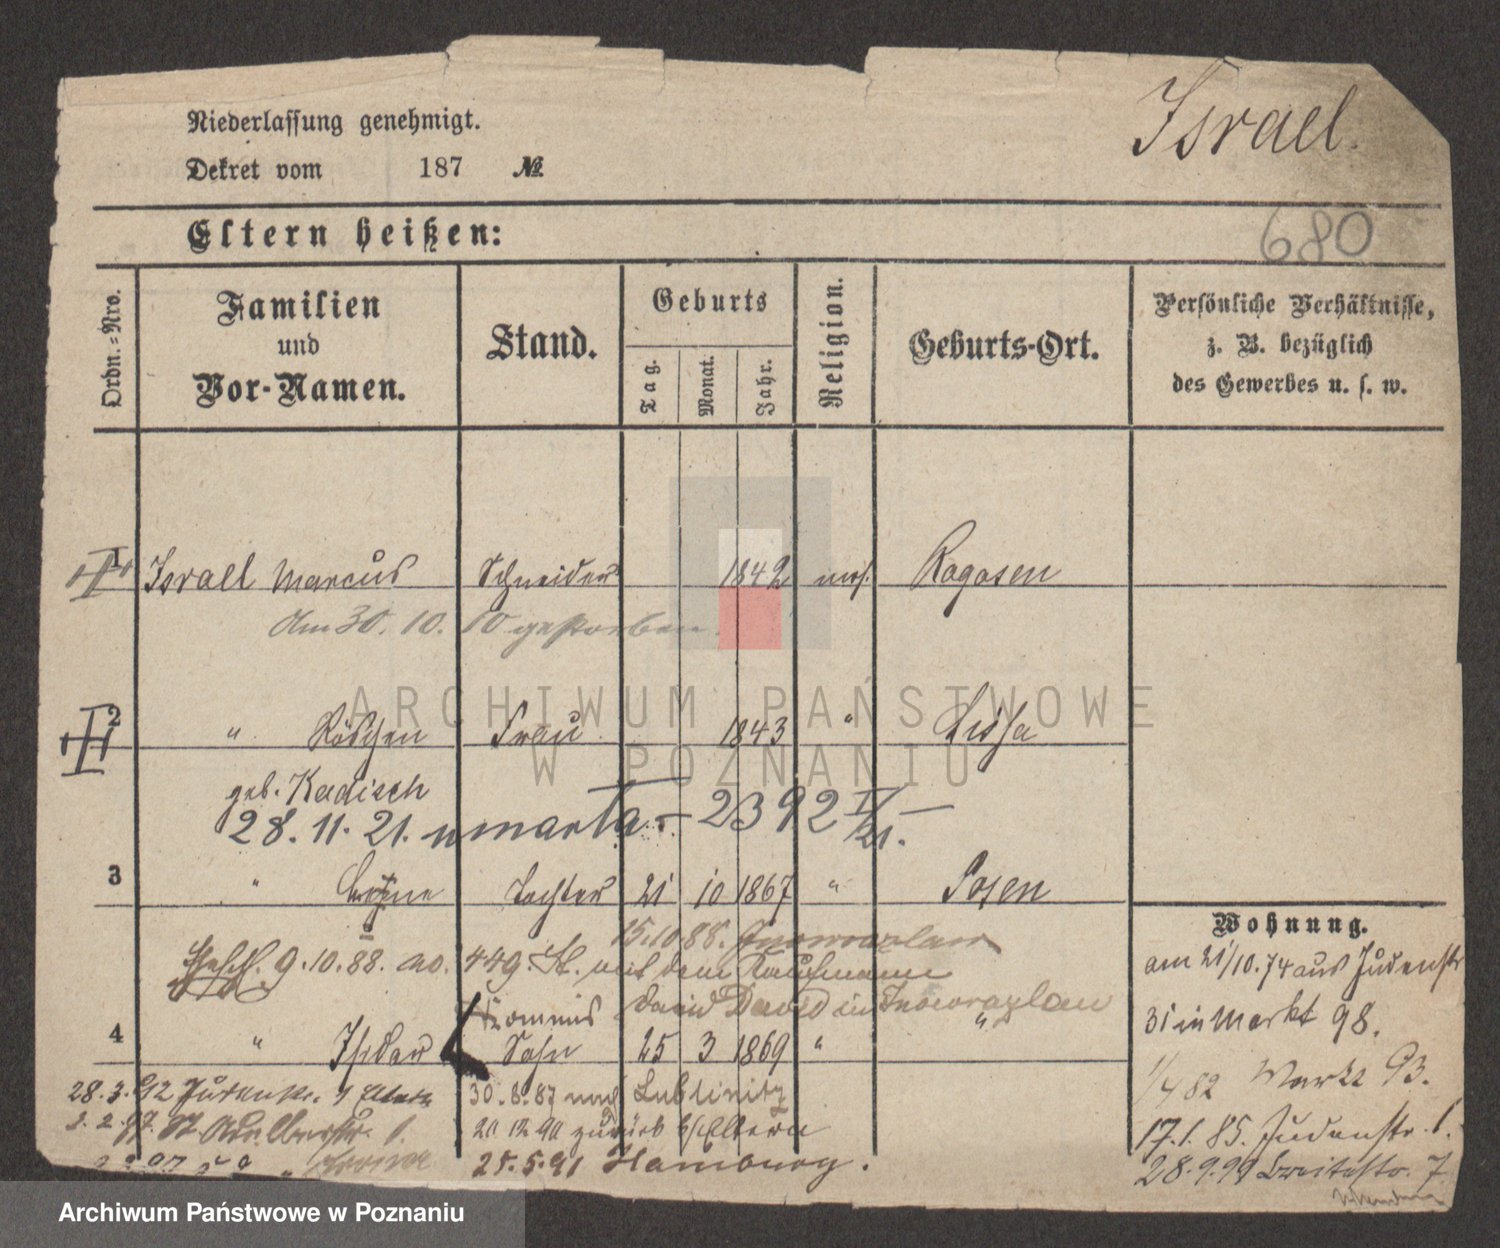 Israel.
Niederlassung genehmigt.
Dekret vom 187 №
680
Eltern heißen:
Ordn.=Nro.
Familien und Vor-Namen.
Stand.
Geburts
Tag.
Monat.
Jahr.
Religion.
Geburts-Ort.
Persönliche Verhältnisse,
z. B. bezüglich
des Gewerbes u. s. w.
1 Israel Marcus Schneider 1842 mos. Rogasen
Am 30. 10. 10 gestorben.
2 " Röschen Frau 1843 " Lissa
geb. Kadisch
28. 11. 21. umarła - 2392
3 " Tochter 21 10 1867 " Posen
15.10.88. Inowrazlaw
9.10.88. no. 449. St. mit dem Kaufmann
Kommis David David in Inowrazlaw
4 " Isidor Sohn 25 3 1869 " "
28.3.92 Judenstr.
30.8.87 nach Lublinitz
2.2.97. St. Adalbertstr. 1.
20 12 90 zurück Eltern
25.5.91 Hamburg.
Wohnung.
am 21/10.74 aus Judenstr
31 in Markt 98.
1/4 82 Markt 93.
17.1.85. Judenstr. 1.
28.9.99 Breitestr. 7
ARCHIWUM PAŃSTWOWE
W POZNANIU
Archiwum Państwowe w Poznaniu